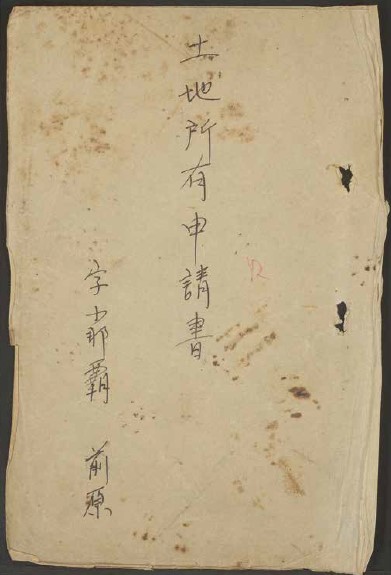 土地所有申請書
字小那覇 前原